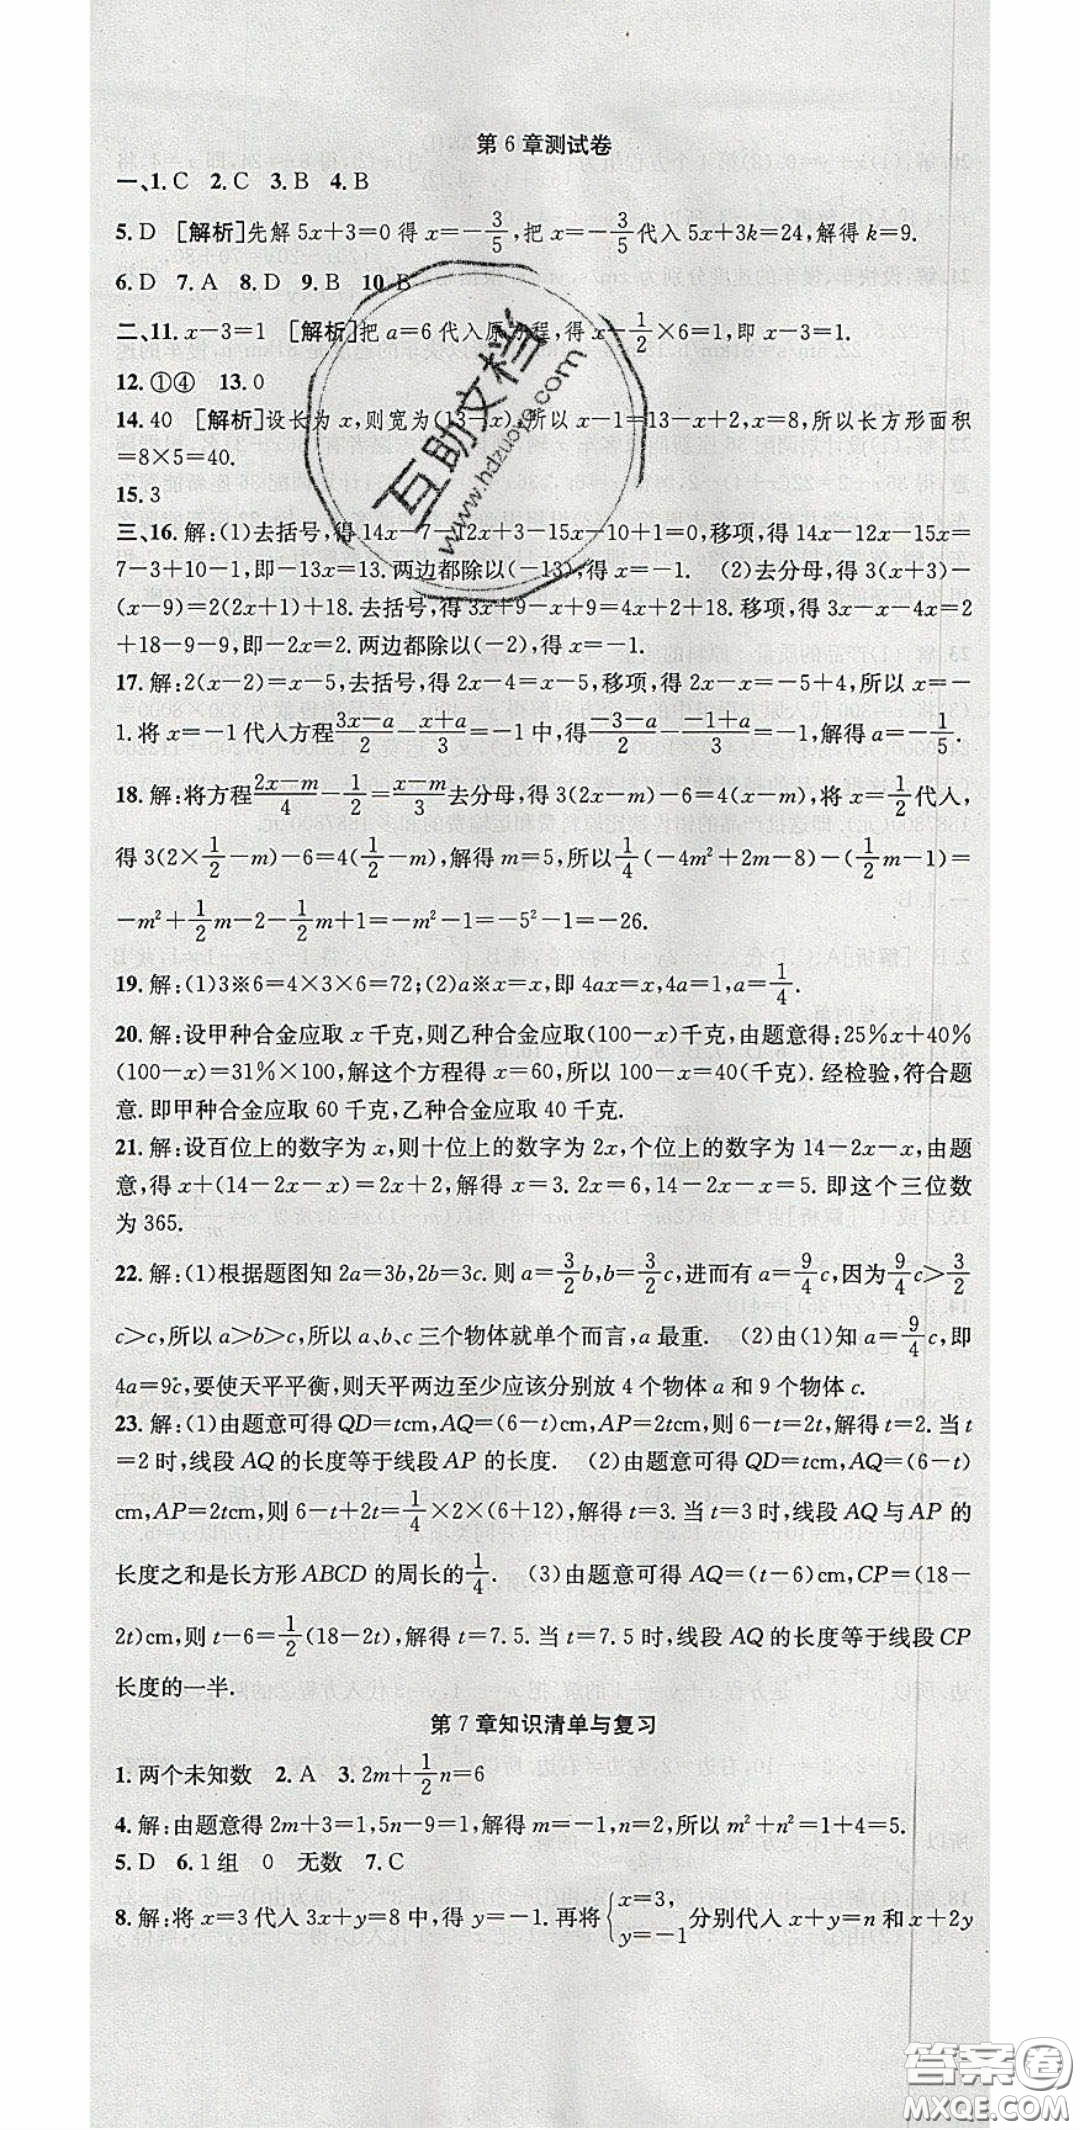 第6章测试卷
一、1. C 2. C 3. B 4. B
5. D [解析]先解5x+3=0得x=-3/5,把x=-3/5代入5x+3k=24,解得k=9.
6. D 7. A 8. D 9. B 10. B
二、11. x-3=1 [解析]把a=6代入原方程,得x-1/2×6=1,即x-3=1.
12. ①④ 13. 0
14. 40 [解析]设长为x,则宽为(13-x),所以x-1=13-x+2,x=8,所以长方形面积
=8×5=40.
15. 3
三、16. 解:(1)去括号,得14x-7-12x+3-15x-10+1=0,移项,得14x-12x-15x=
7-3+10-1,即-13x=13.两边都除以(-13),得x=-1. (2)去分母,得3(x+3)-
(x-9)=2(2x+1)+18.去括号,得3x+9-x+9=4x+2+18.移项,得3x-x-4x=2
+18-9-9,即-2x=2.两边都除以(-2),得x=-1.
17. 解:2(x-2)=x-5,去括号,得2x-4=x-5,移项,得2x-x=-5+4,所以x=-
1.将x=-1代入方程(3x-a)/2-(x+a)/3=-1中,得(-3-a)/2-(-1+a)/3=-1,解得a=-1/5.
18. 解:将方程(2x-m)/4-1/2=(x-m)/3去分母,得3(2x-m)-6=4(x-m),将x=1/2代入,
得3(2×1/2-m)-6=4(1/2-m),解得m=5,所以1/4(-4m²+2m-8)-(1/2m-1)=
-m²+1/2m-2-1/2m+1=-m²-1=-5²-1=-26.
19. 解:(1)3※6=4×3×6=72;(2)a※x=x,即4ax=x,4a=1,a=1/4.
20. 解:设甲种合金应取x千克,则乙种合金应取(100-x)千克,由题意得:25%x+40%
(100-x)=31%×100,解这个方程得x=60,所以100-x=40(千克).经检验,符合题
意.即甲种合金应取60千克,乙种合金应取40千克.
21. 解:设百位上的数字为x,则十位上的数字为2x,个位上的数字为14-2x-x,由题
意,得x+(14-2x-x)=2x+2,解得x=3.2x=6,14-2x-x=5.即这个三位数
为365.
22. 解:(1)根据题图知2a=3b,2b=3c.则a=3/2b,b=3/2c,进而有a=9/4c,因为9/4c>3/2
c>c,所以a>b>c,所以a、b、c三个物体就单个而言,a最重. (2)由(1)知a=9/4c,即
4a=9c,要使天平平衡,则天平两边至少应该分别放4个物体a和9个物体c.
23. 解:(1)由题意可得QD=tcm,AQ=(6-t)cm,AP=2tcm,则6-t=2t,解得t=2.当t
=2时,线段AQ的长度等于线段AP的长度. (2)由题意可得QD=tcm,AQ=(6-t)
cm,AP=2tcm,则6-t+2t=1/4×2×(6+12),解得t=3.当t=3时,线段AQ与AP的
长度之和是长方形ABCD的周长的1/4. (3)由题意可得AQ=(t-6)cm,CP=(18-
2t)cm,则t-6=1/2(18-2t),解得t=7.5.当t=7.5时,线段AQ的长度等于线段CP
长度的一半.
第7章知识清单与复习
1. 两个未知数 2. A 3. 2m+1/2n=6
4. 解:由题意得2m+3=1,5n-9=1,解得m=-1,n=2,所以m²+n²=1+4=5.
5. D 6. 1组 0 无数 7. C
8. 解:将x=3代入3x+y=8中,得y=-1.再将{x=3, y=-1分别代入x+y=n和x+2y
互助文档
www.hdzuoye.com
答案圈
MXQE.COM